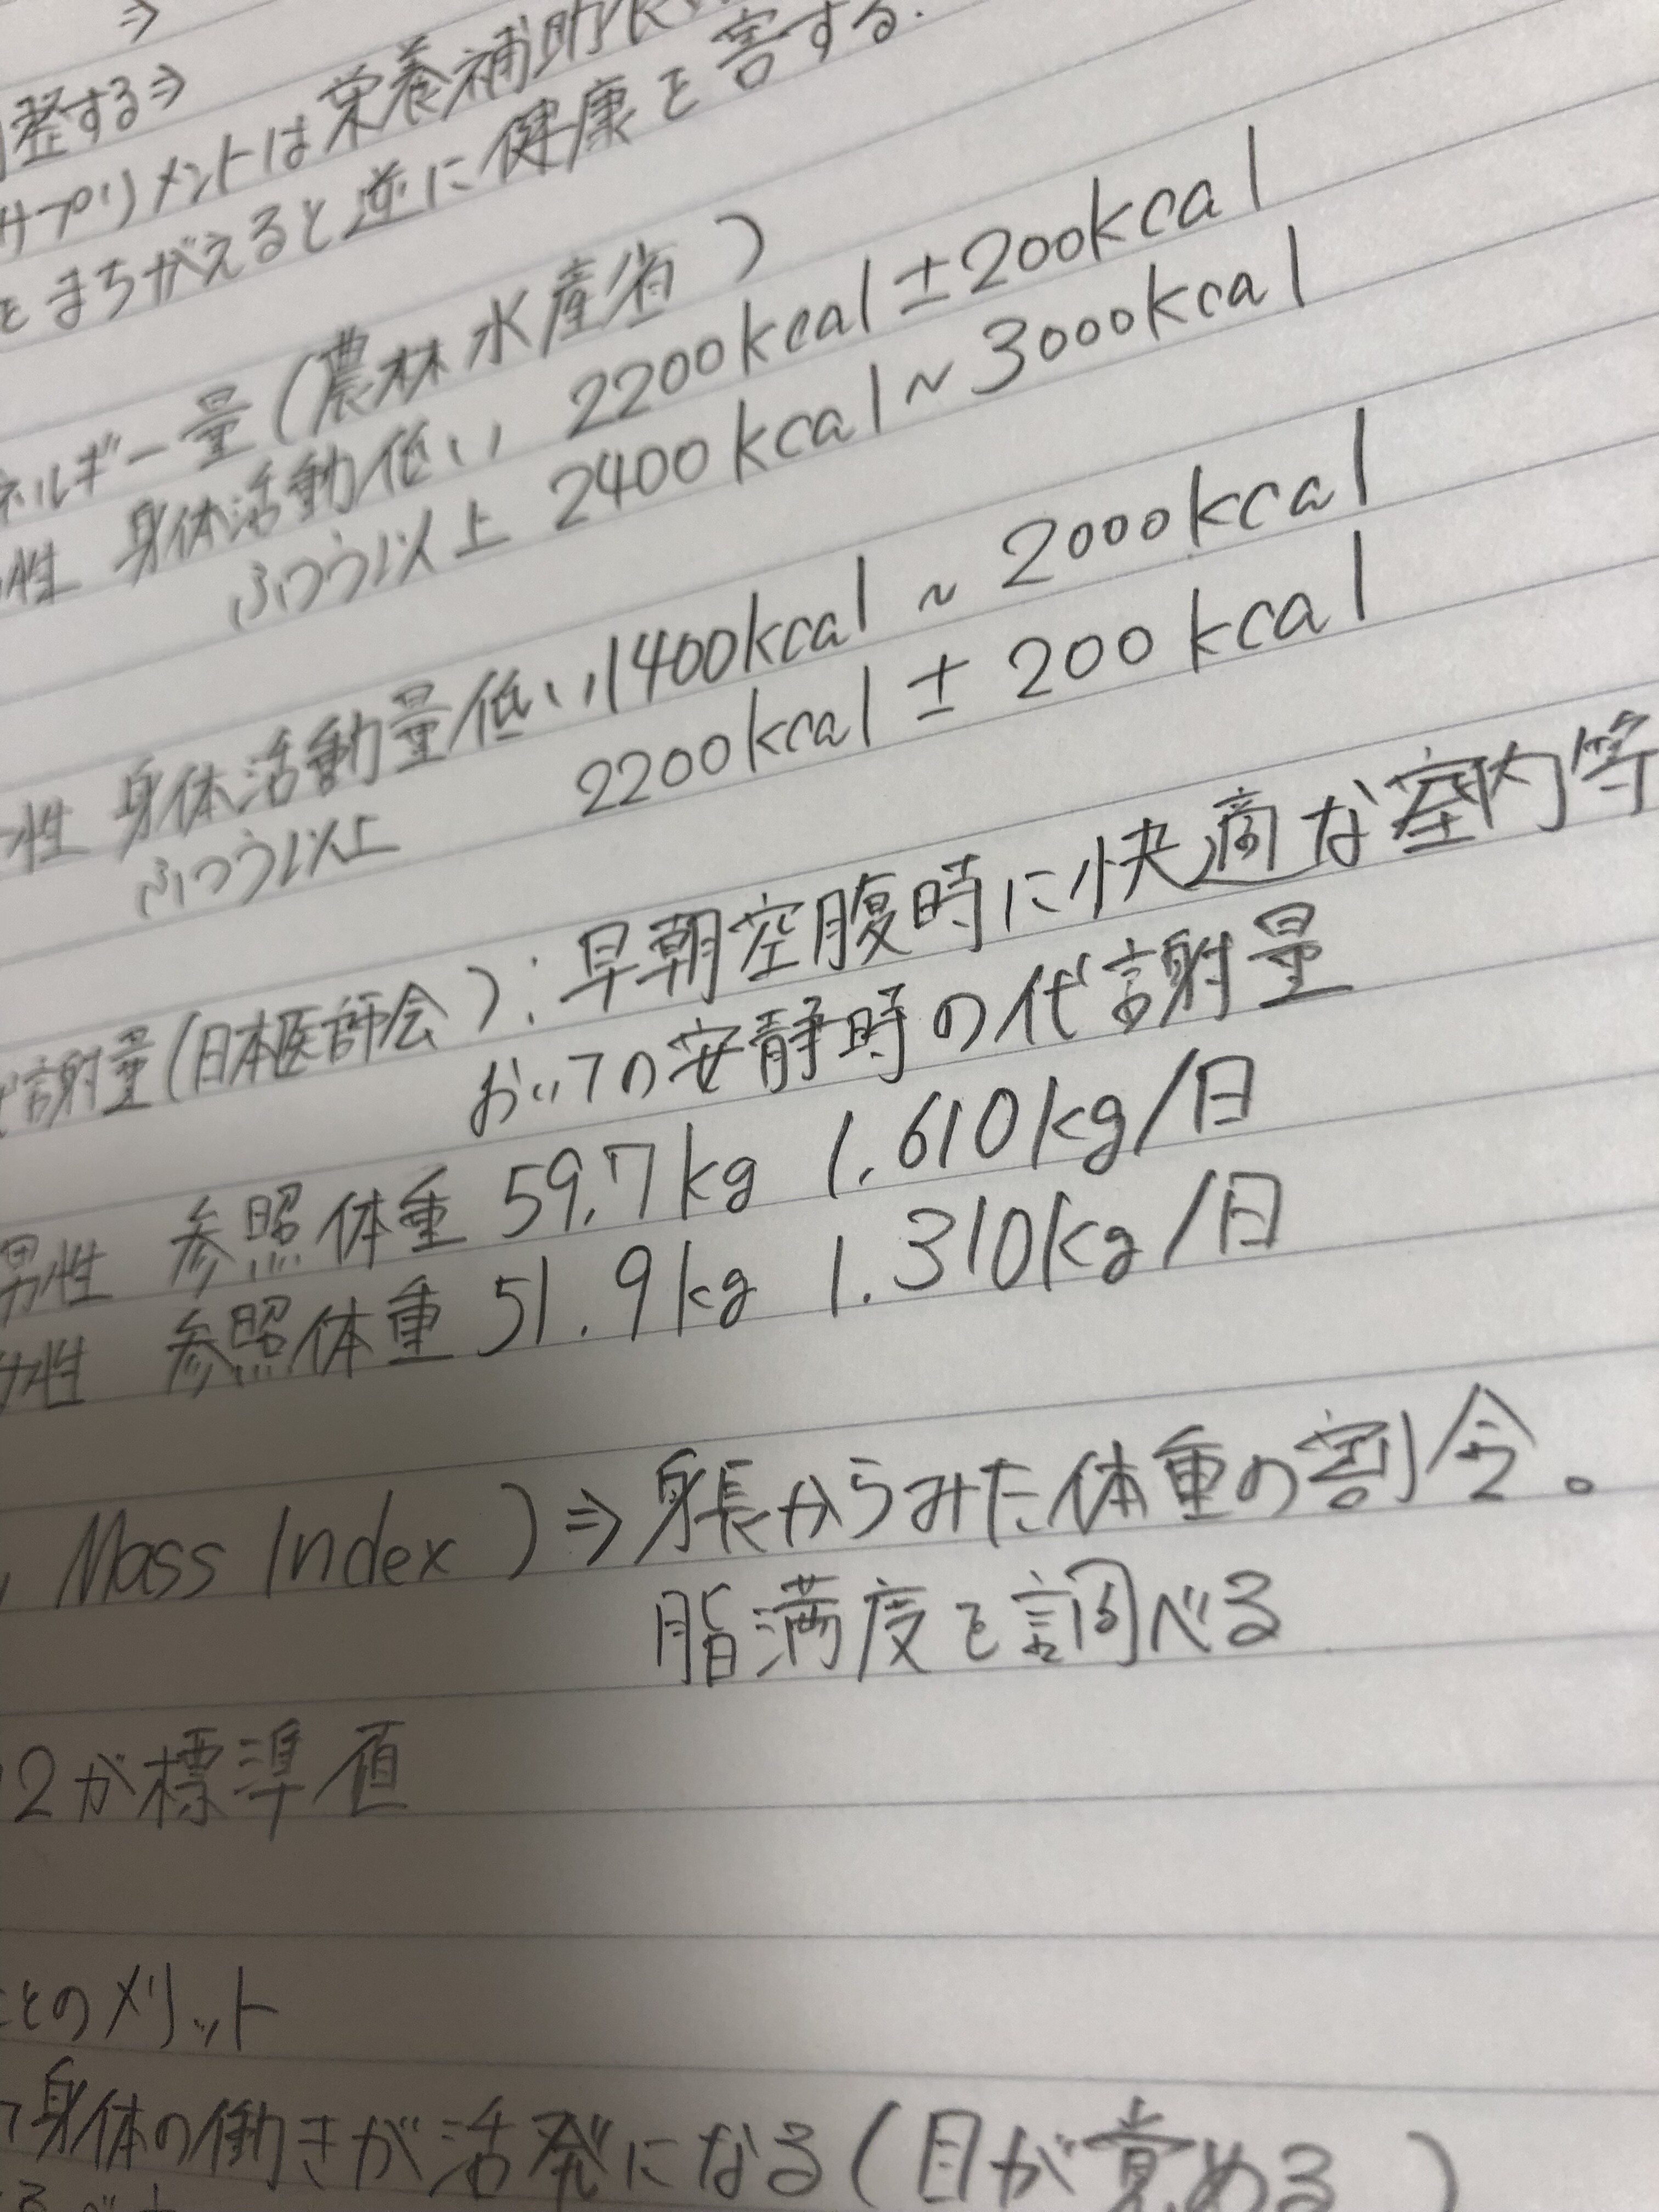 ⇒
整する⇒
サプリメントは栄養補助
をまちがえると逆に健康を害する.
ネルギー量(農林水産省)
性 身体活動低い 2200kcal±200kcal
ふつう以上 2400kcal~3000kcal
性 身体活動量低い 1400kcal ~ 2000kcal
ふつう以上 2200kcal ± 200kcal
謝量(日本医師会):早朝空腹時に快適な室内等
おいての安静時の代謝量
男性 参照体重 59.7kg 1.610kg/日
性 参照体重 51.9kg 1.310kg/日
Mass Index)⇒身長からみた体重の割合。
脂満度を調べる
2が標準値
ことのメリット
身体の働きが活発になる(目が覚める)